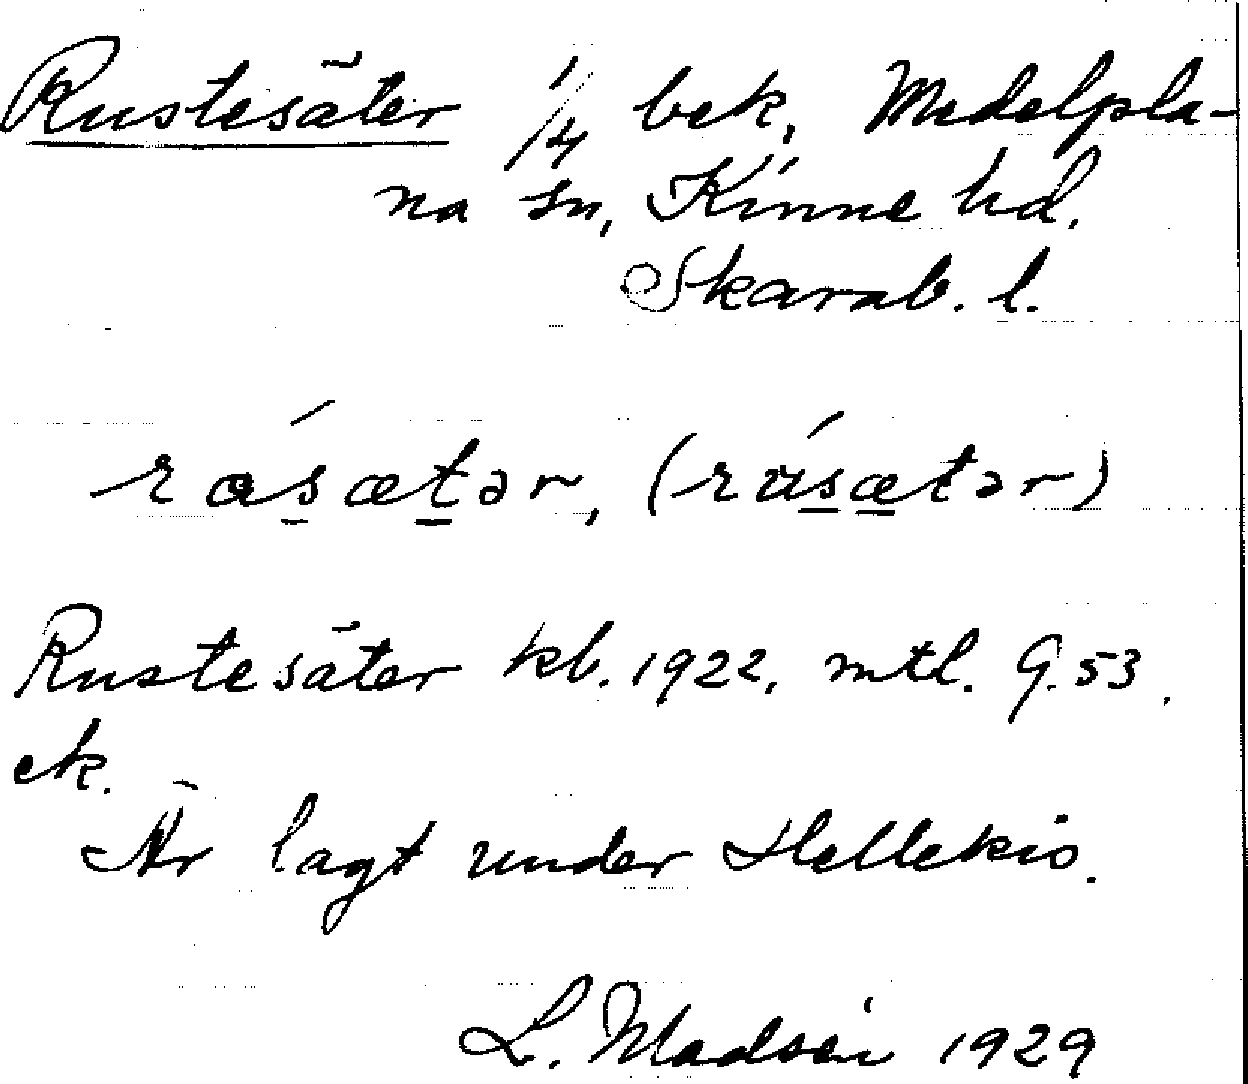 Rustesäter 1/4 bek, Medelpla-
na sn, Kinne hd.
Skarab. l.
rás̱æṯər, (rús̱æ̱tər)
Rustesäter kb. 1922, mtl. G. 53.
ek.
Är lagt under Hellekis.
L. Madsén 1929